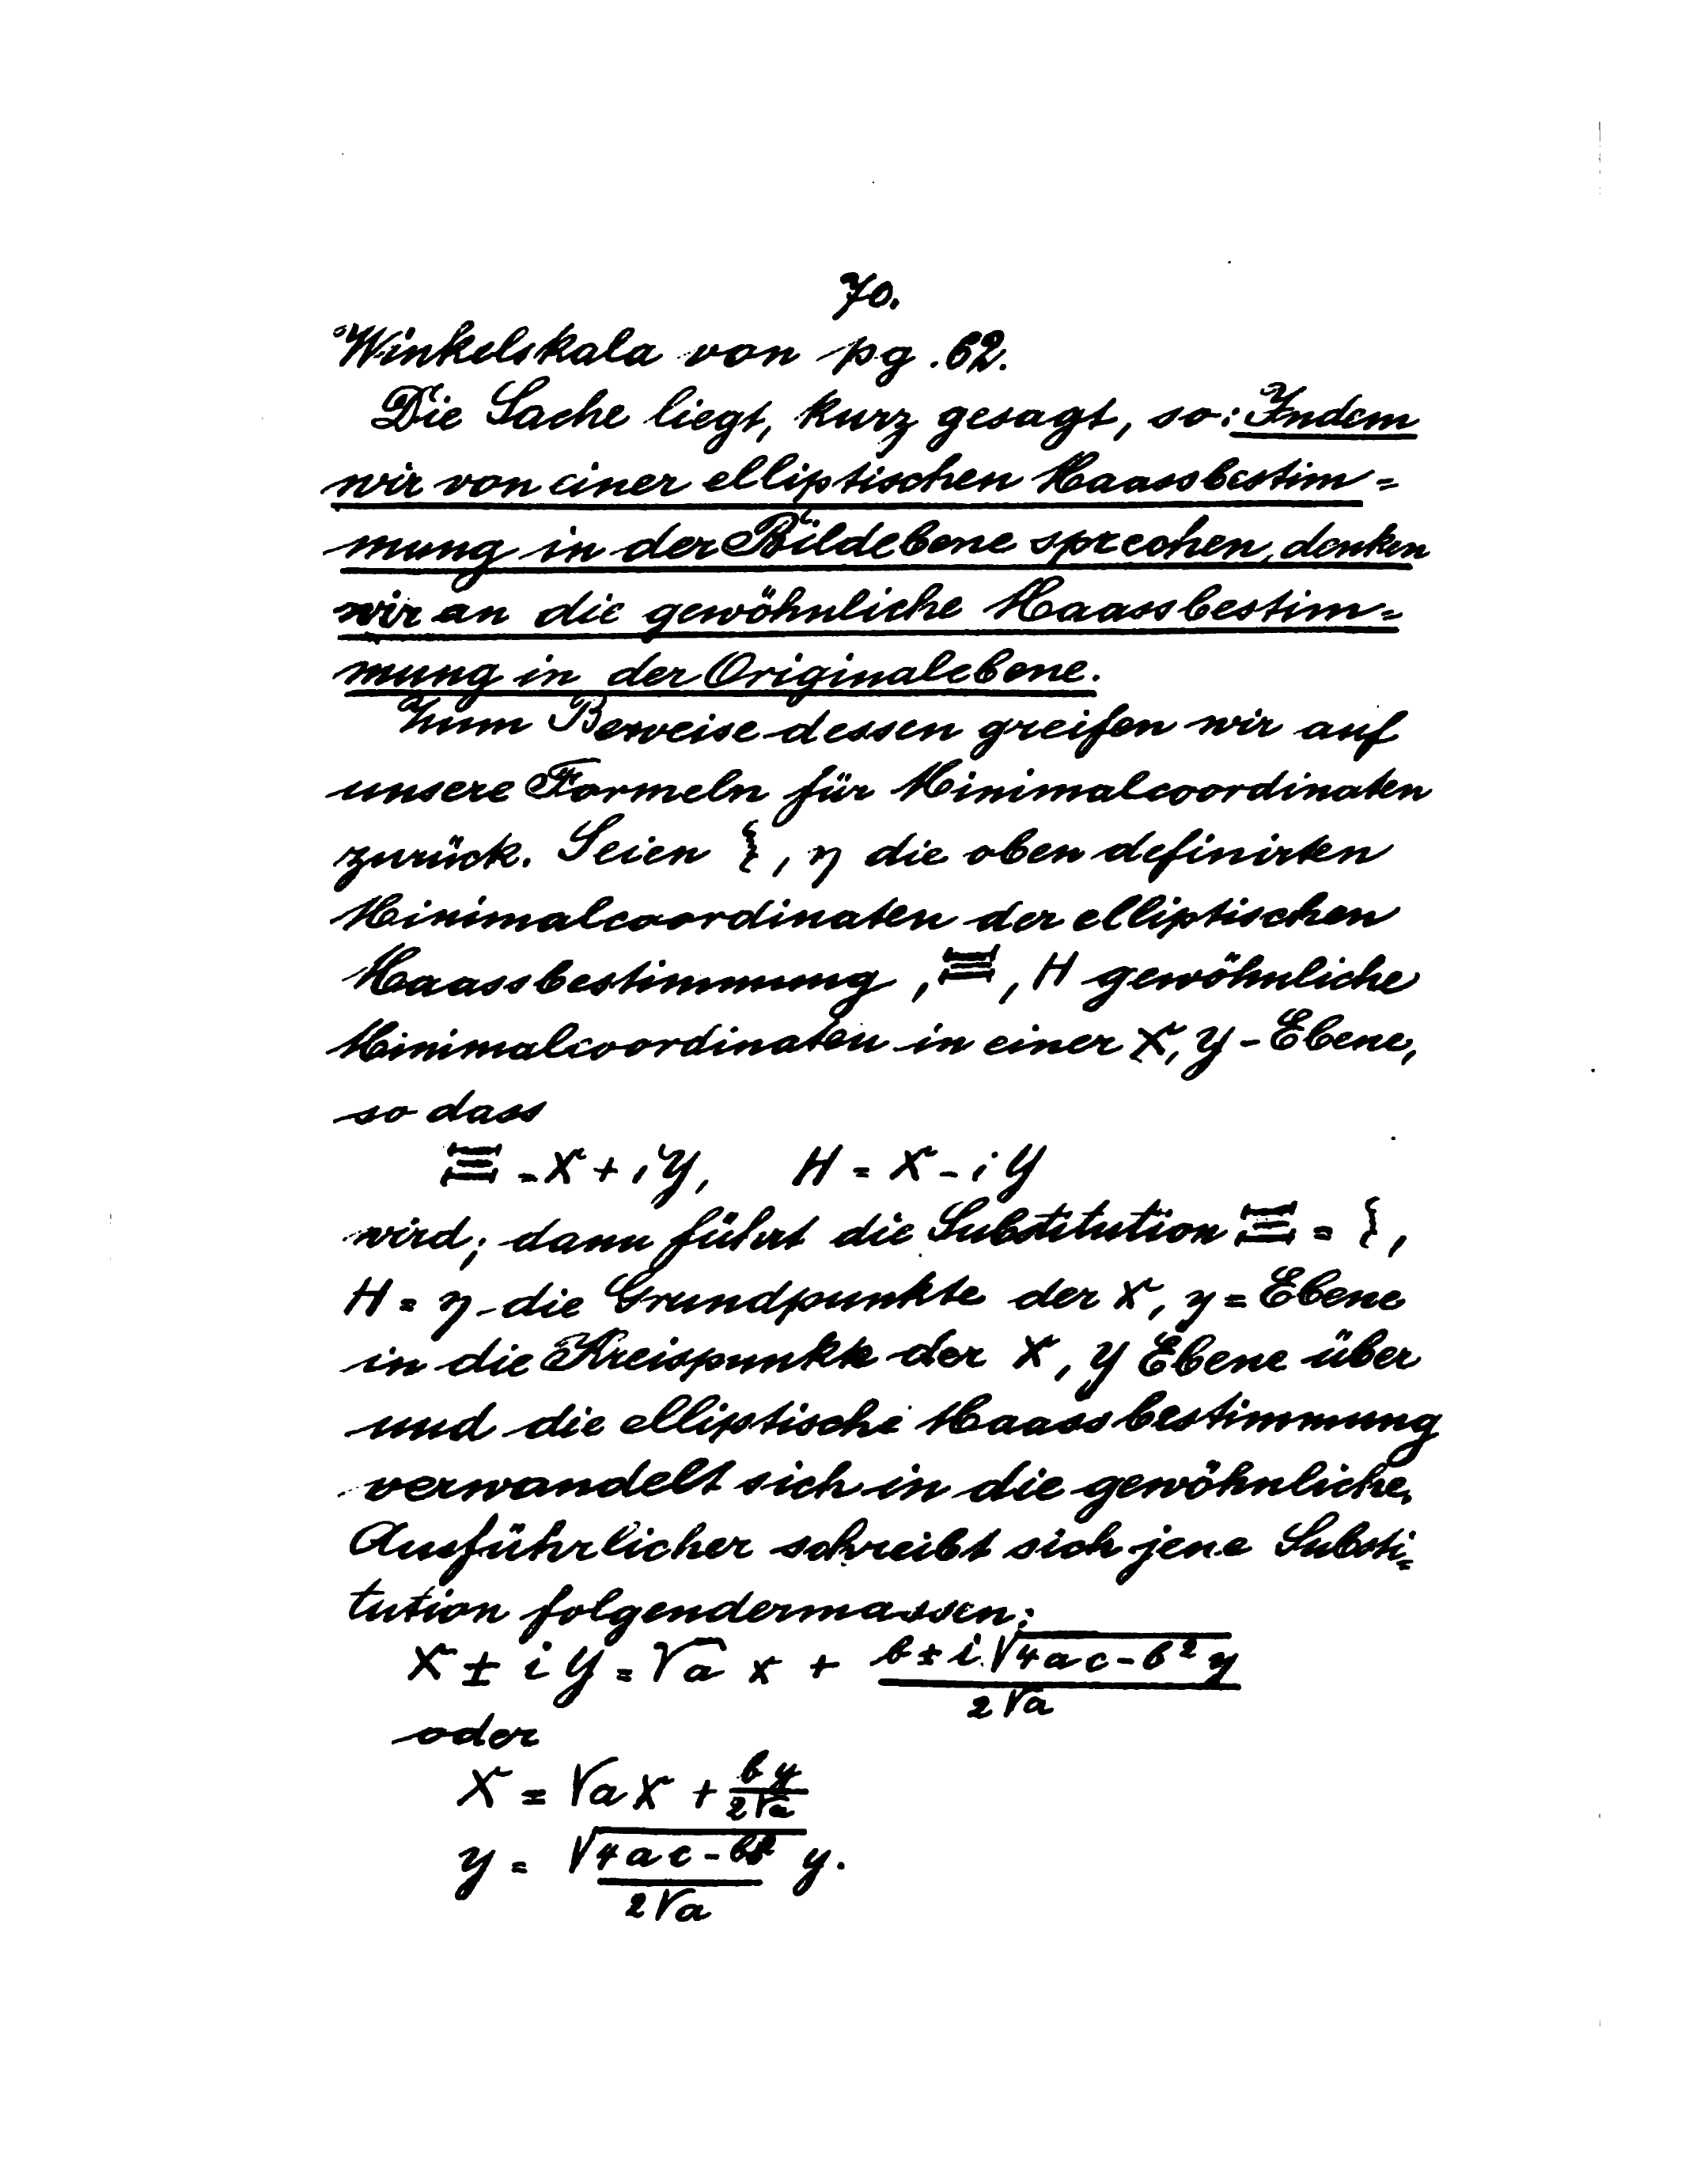 70.
Winkelskala von pg. 62.
Die Sache liegt, kurz gesagt, so: Indem
wir von einer elliptischen Maassbestim=
mung in der Bildebene sprechen, denken
wir an die gewöhnliche Maassbestim=
mung in der Originalebene.
Zum Beweise dessen greifen wir auf
unsere Formeln für Minimalcoordinaten
zurück. Seien ξ, η die oben definirten
Minimalcoordinaten der elliptischen
Maassbestimmung, Ξ, H gewöhnliche
Minimalcoordinaten in einer X, Y-Ebene,
so dass
Ξ = X + iY, H = X - iY
wird; dann führt die Substitution Ξ = ξ,
H = η die Grundpunkte der x, y = Ebene
in die Kreispunkte der X, Y Ebene über
und die elliptische Maassbestimmung
verwandelt sich in die gewöhnliche.
Ausführlicher schreibt sich jene Substi=
tution folgendermassen:
X ± iY = √a x + (b ± i √(4ac - b²) y) / (2√a)
oder
X = √a x + by / (2√a)
Y = √(4ac - b²) / (2√a) y.